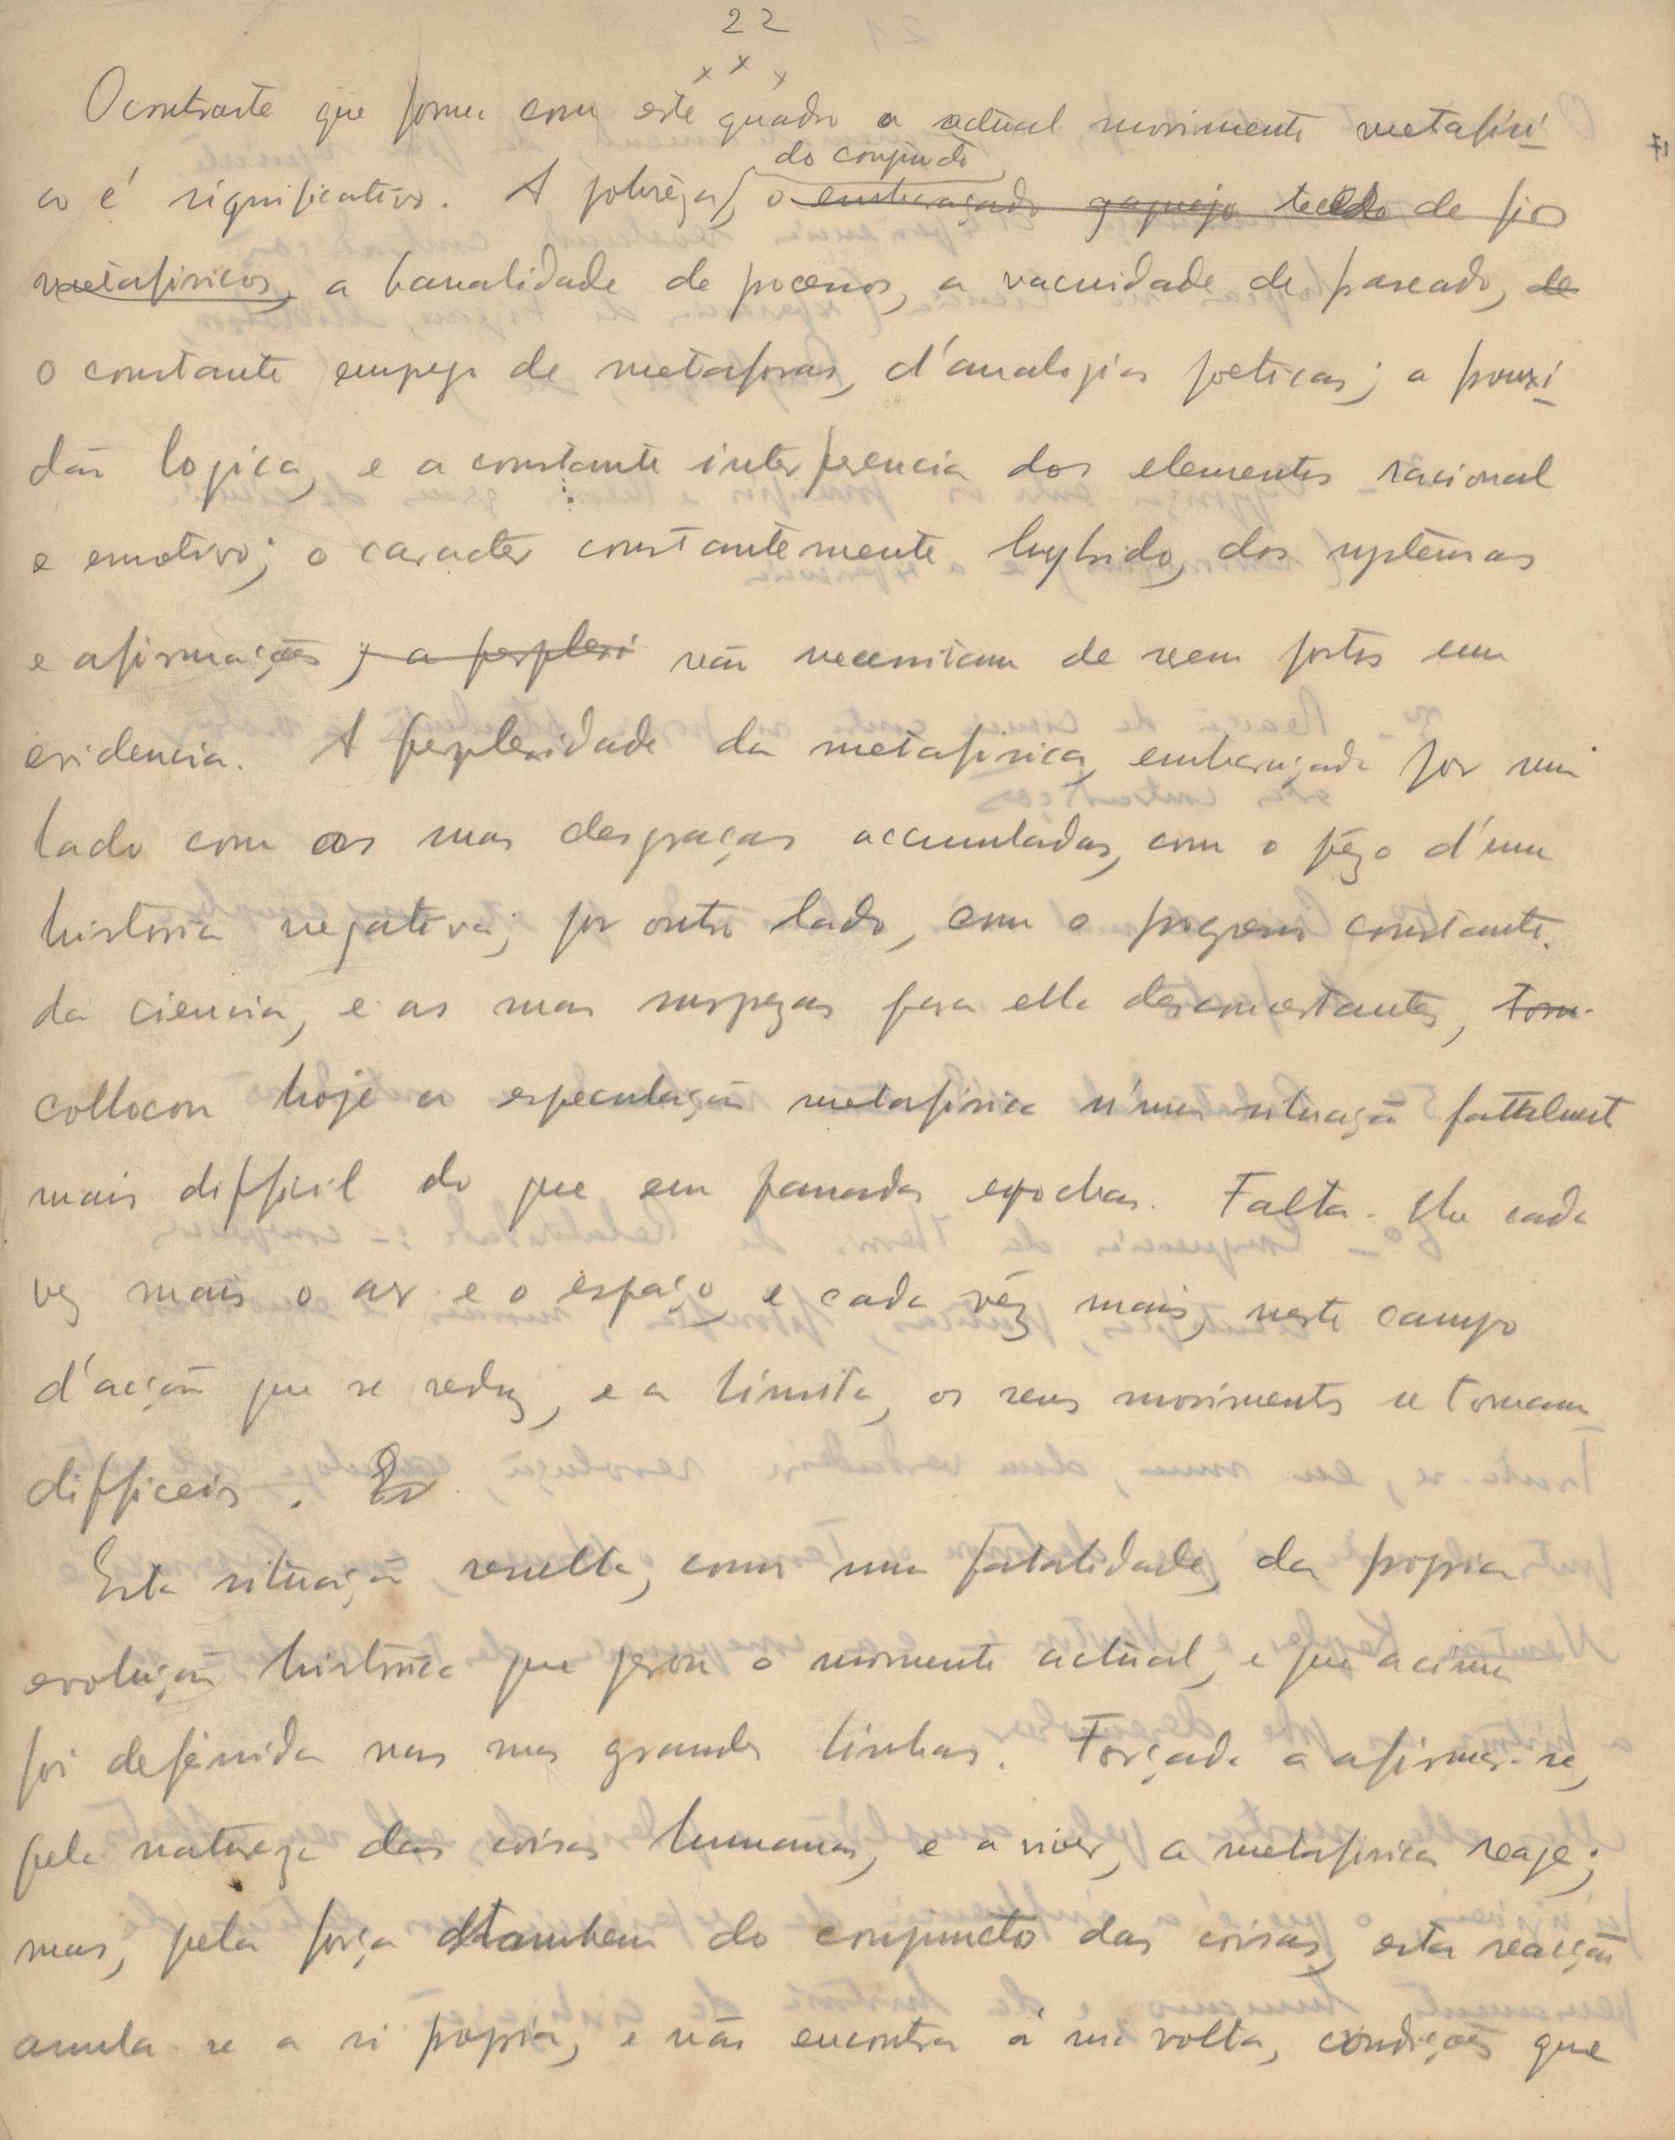 22
x x x
O contraste que forma com este quadro o actual movimento metafisi-
co é significativo. A pobrêza, do conjuncto
o embaraçado tecido de fios
metafisicos, a banalidade de processos, a vacuidade de passado, de
o constante emprego de metaforas, d'analogias poeticas; a frouxi-
dão logica, e a constante interferencia dos elementos racional
e emotivo; o caracter constantemente hybrido, dos systemas
e afirmações ; a perplexi não necessitam de serem postos em
evidencia. A perplexidade da metafisica, embaraçada por um
lado com as suas desgraças accumuladas, com o pêzo d'uma
historia negativa; por outro lado, com o progresso constante
da ciencia, e as suas surprezas para ella desconcertantes, torn-
collocou hoje a especulação metafisica n'uma situação fatalmt
mais difficil do que em passadas epochas. Falta-lhe cada
vez mais o ar e o espaço, e cada vêz mais, neste campo
d'acção que se reduz, e a limita, os seus movimentos se tornam
difficeis.
Esta situação resulta, como uma fatalidade, da propria
evolução historica que gerou o momento actual, e que acima
foi definida nas suas grandes linhas. Forçada a afirmar-se,
pela natureza das coisas humanas, e a viver, a metafisica reage;
mas, pela força tambem do conjuncto das coisas, esta reacção
annula-se a si propria, e não encontra á sua volta, condições que